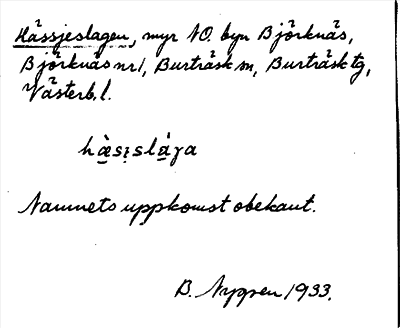 Hässjeslagen, myr NO. byn Björknäs,
Björknäs nr 1, Burträsk sn, Burträsk tg,
Västerb. l.
hàsịsláγa
Namnets uppkomst obekant.
B. Nyppen 1933.